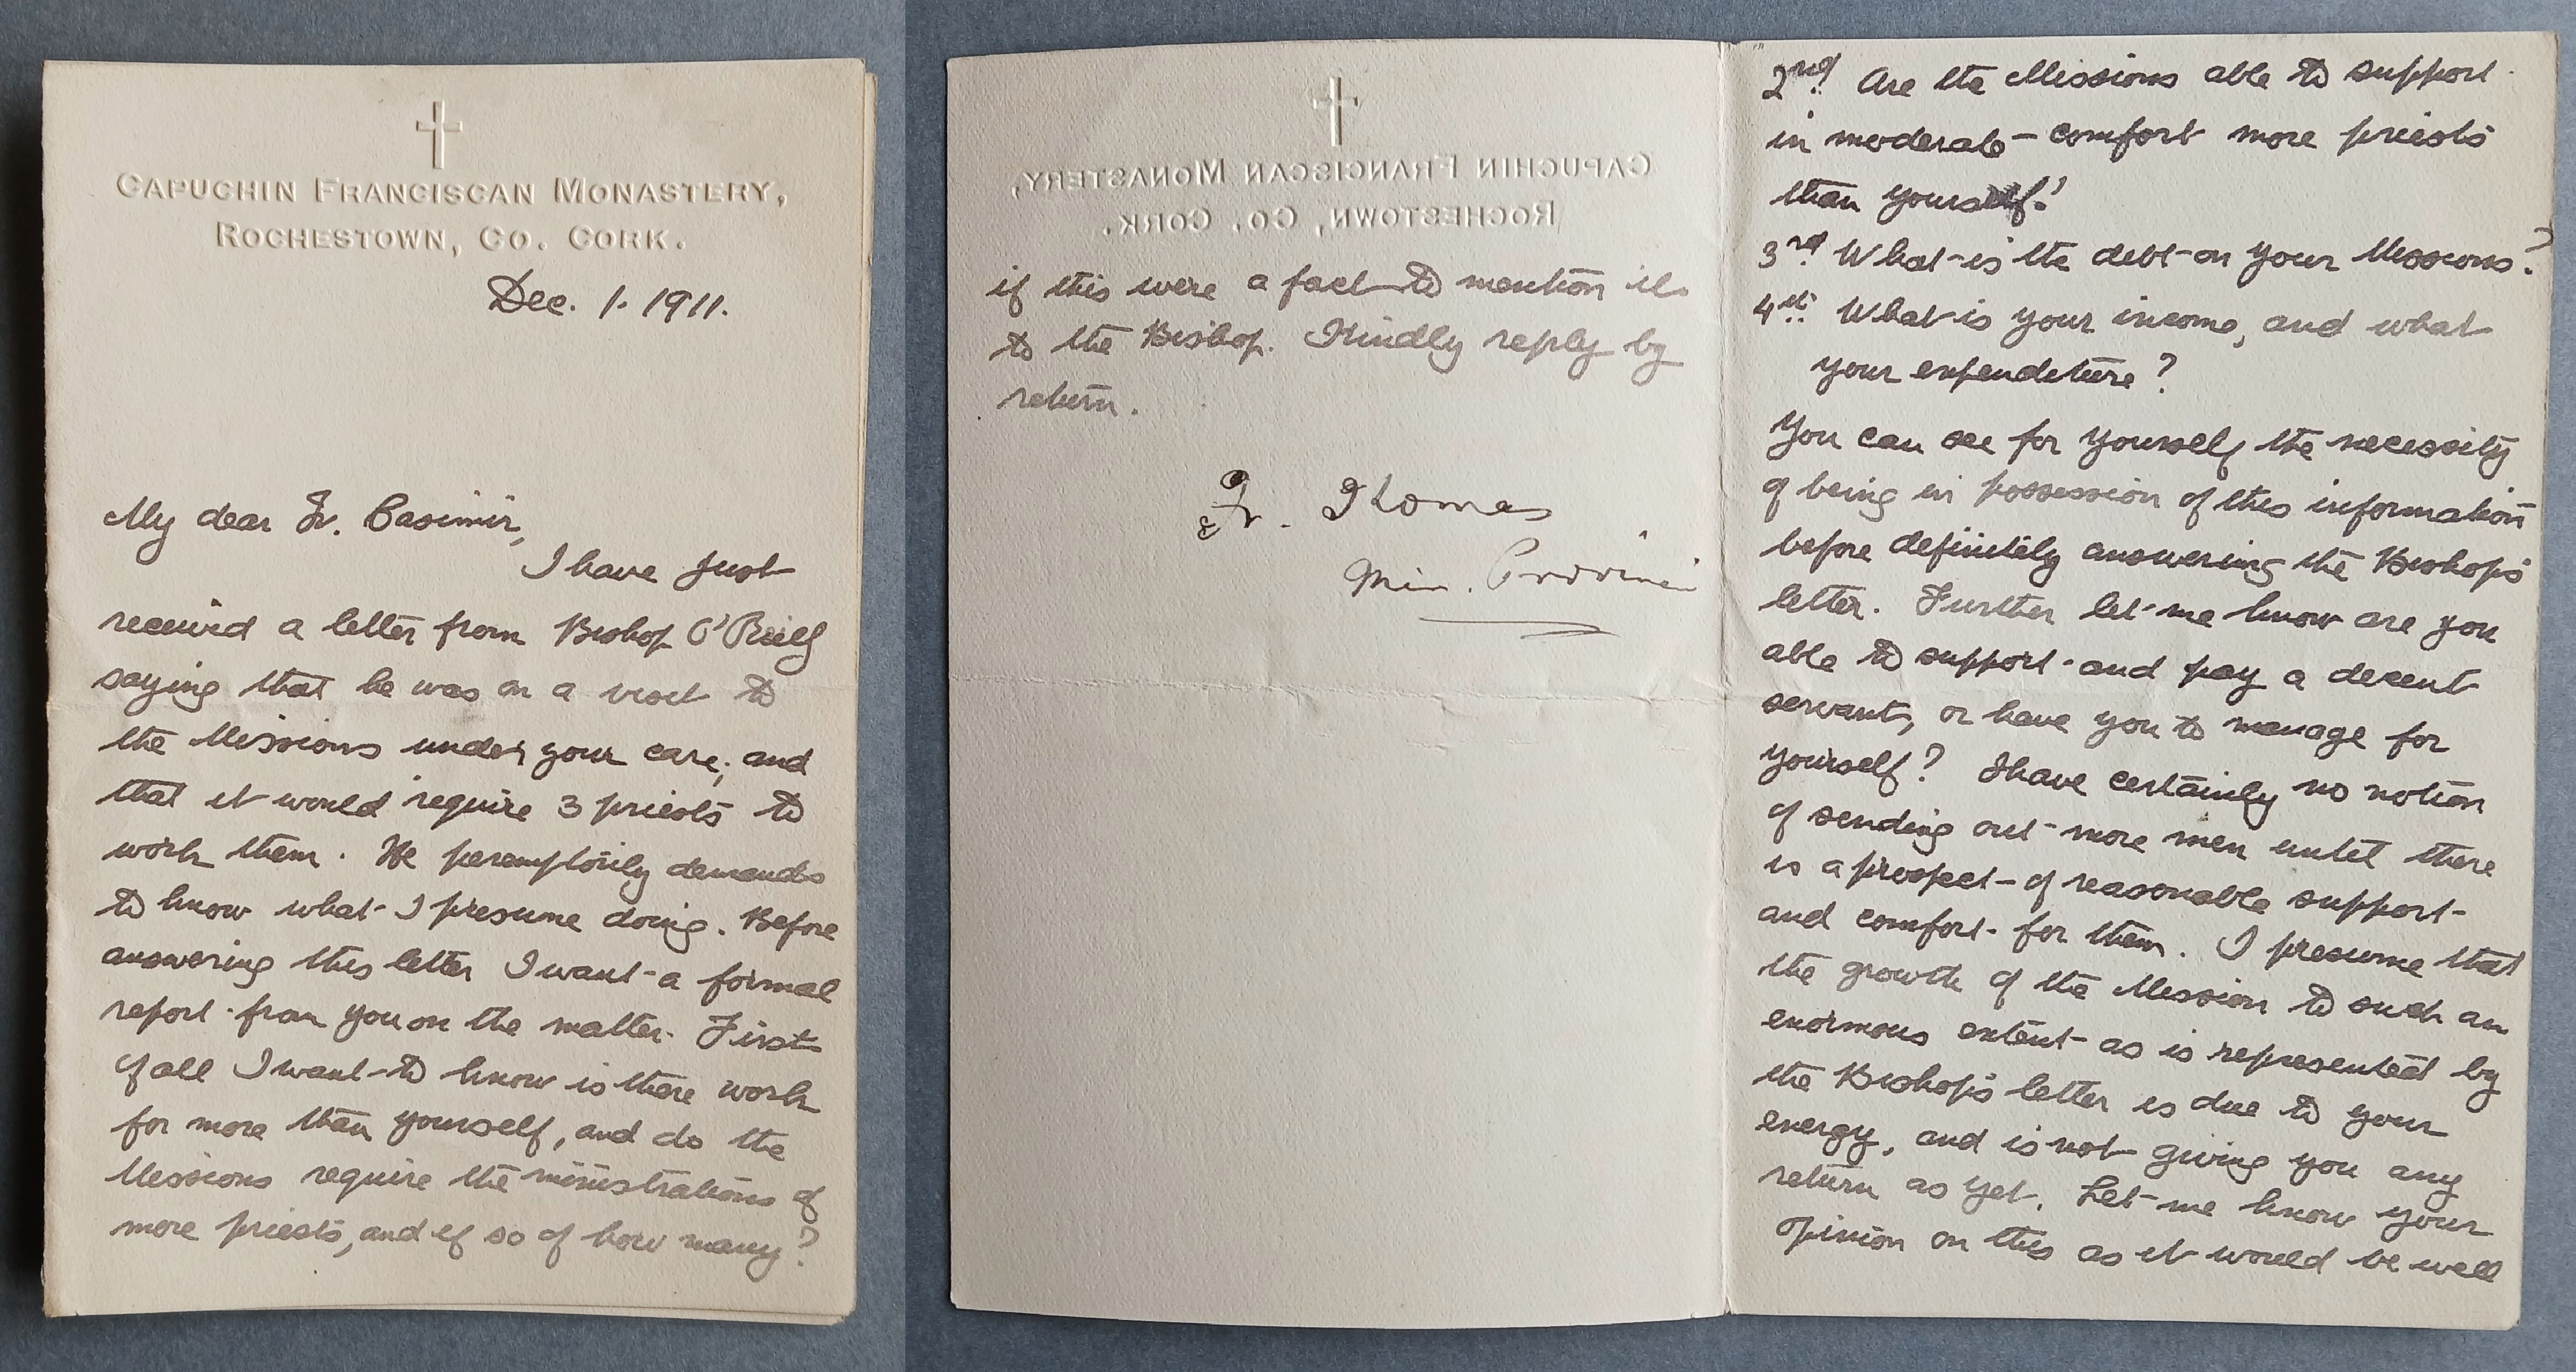 CAPUCHIN FRANCISCAN MONASTERY,
ROCHESTOWN, CO. CORK.
Dec. 1. 1911.
My dear Fr. Casimir,
I have just
received a letter from Bishop O'Rielly
saying that he was on a visit to
the Missions under your care; and
that it would require 3 priests to
work them. He peremptorily demands
to know what I presume doing. Before
answering this letter I want a formal
report from you on the matter. First
of all I want to know is there work
for more than yourself, and do the
Missions require the ministrations of
more priests, and if so of how many?
2nd. Are the Missions able to support
in moderate comfort more priests
than yourself?
3rd. What is the debt on your Missions?
4th. What is your income, and what
your expenditure?
You can see for yourself the necessity
of being in possession of this information
before definitely answering the Bishop's
letter. Further let me know are you
able to support and pay a decent
servant, or have you to manage for
yourself? I have certainly no notion
of sending out more men until there
is a prospect of reasonable support
and comfort for them. I presume that
the growth of the Mission to such an
enormous extent as is represented by
the Bishop's letter is due to your
energy, and is not giving you any
return as yet. Let me know your
opinion on this as it would be well
CAPUCHIN FRANCISCAN MONASTERY,
ROCHESTOWN, CO. CORK.
if this were a fact to mention it
to the Bishop. Kindly reply by
return.
Fr. Thomas
Min. Provinci